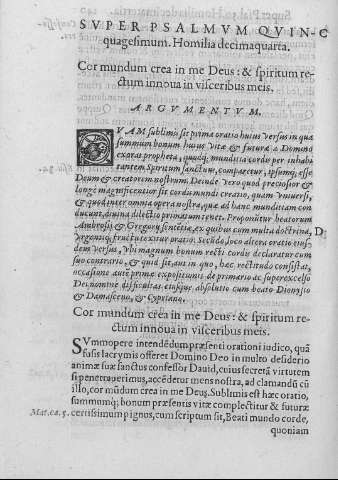 SVPER PSALMVM QVIN-
quagesimum. Homilia decimaquarta.
Cor mundum crea in me Deus: & spiritum re-
ctum innoua in visceribus meis.
ARGVMENTVM.
QVAM sublimis sit prima oratio huius versus in qua
summum bonum huius vitæ & futuræ a Domino
exorat propheta, quodq; munditia cordis per inhabi
tantem Spiritum sanctum, comparetur, ipsumq; esse
Deum & creatorem nostrum. Deinde vero quod preciosior &
longè magnificentior sit cordis mundi creatio, quam vniuersi,
& quod inter omnia opera nostra, quæ ad hanc munditiam con
ducunt, diuina dilectio primatum tenet. Proponūtur beatorum
Ambrosij & Gregorij sentētiæ, ex quibus cum multa doctrina, D
vrgentiq; fructu texitur oratio. Secūdo loco altera oratio eius-
dem versus, Vbi magnum bonum recti cordis declaratur cum
suo contrario, & quid sit, aut in quo, hæc rectitudo consistat,
occasione autē primæ expositionis de primario ac superexcelso
Dei nomine difficultas, eiusq; absolutio cum beato Dionysio
& Damasceno, & Cypriano.
Cor mundum crea in me Deus: & spiritum re-
ctum innoua in visceribus meis.
SVmmopere intendēdum præsenti orationi iudico, quā
fusis lacrymis offeret Domino Deo in multo desiderio
animæ suæ sanctus confessor Dauid, cuius secretā virtutem
si penetrauerimus, accēdetur mens nostra, ad clamandū cū
illo, cor mūdum crea in me Deus. Sublimis est hæc oratio,
summumq; bonum præsentis vitæ complectitur & futuræ
Mat.ca.5. certissimum pignus, cum scriptum sit, Beati mundo corde,
quoniam